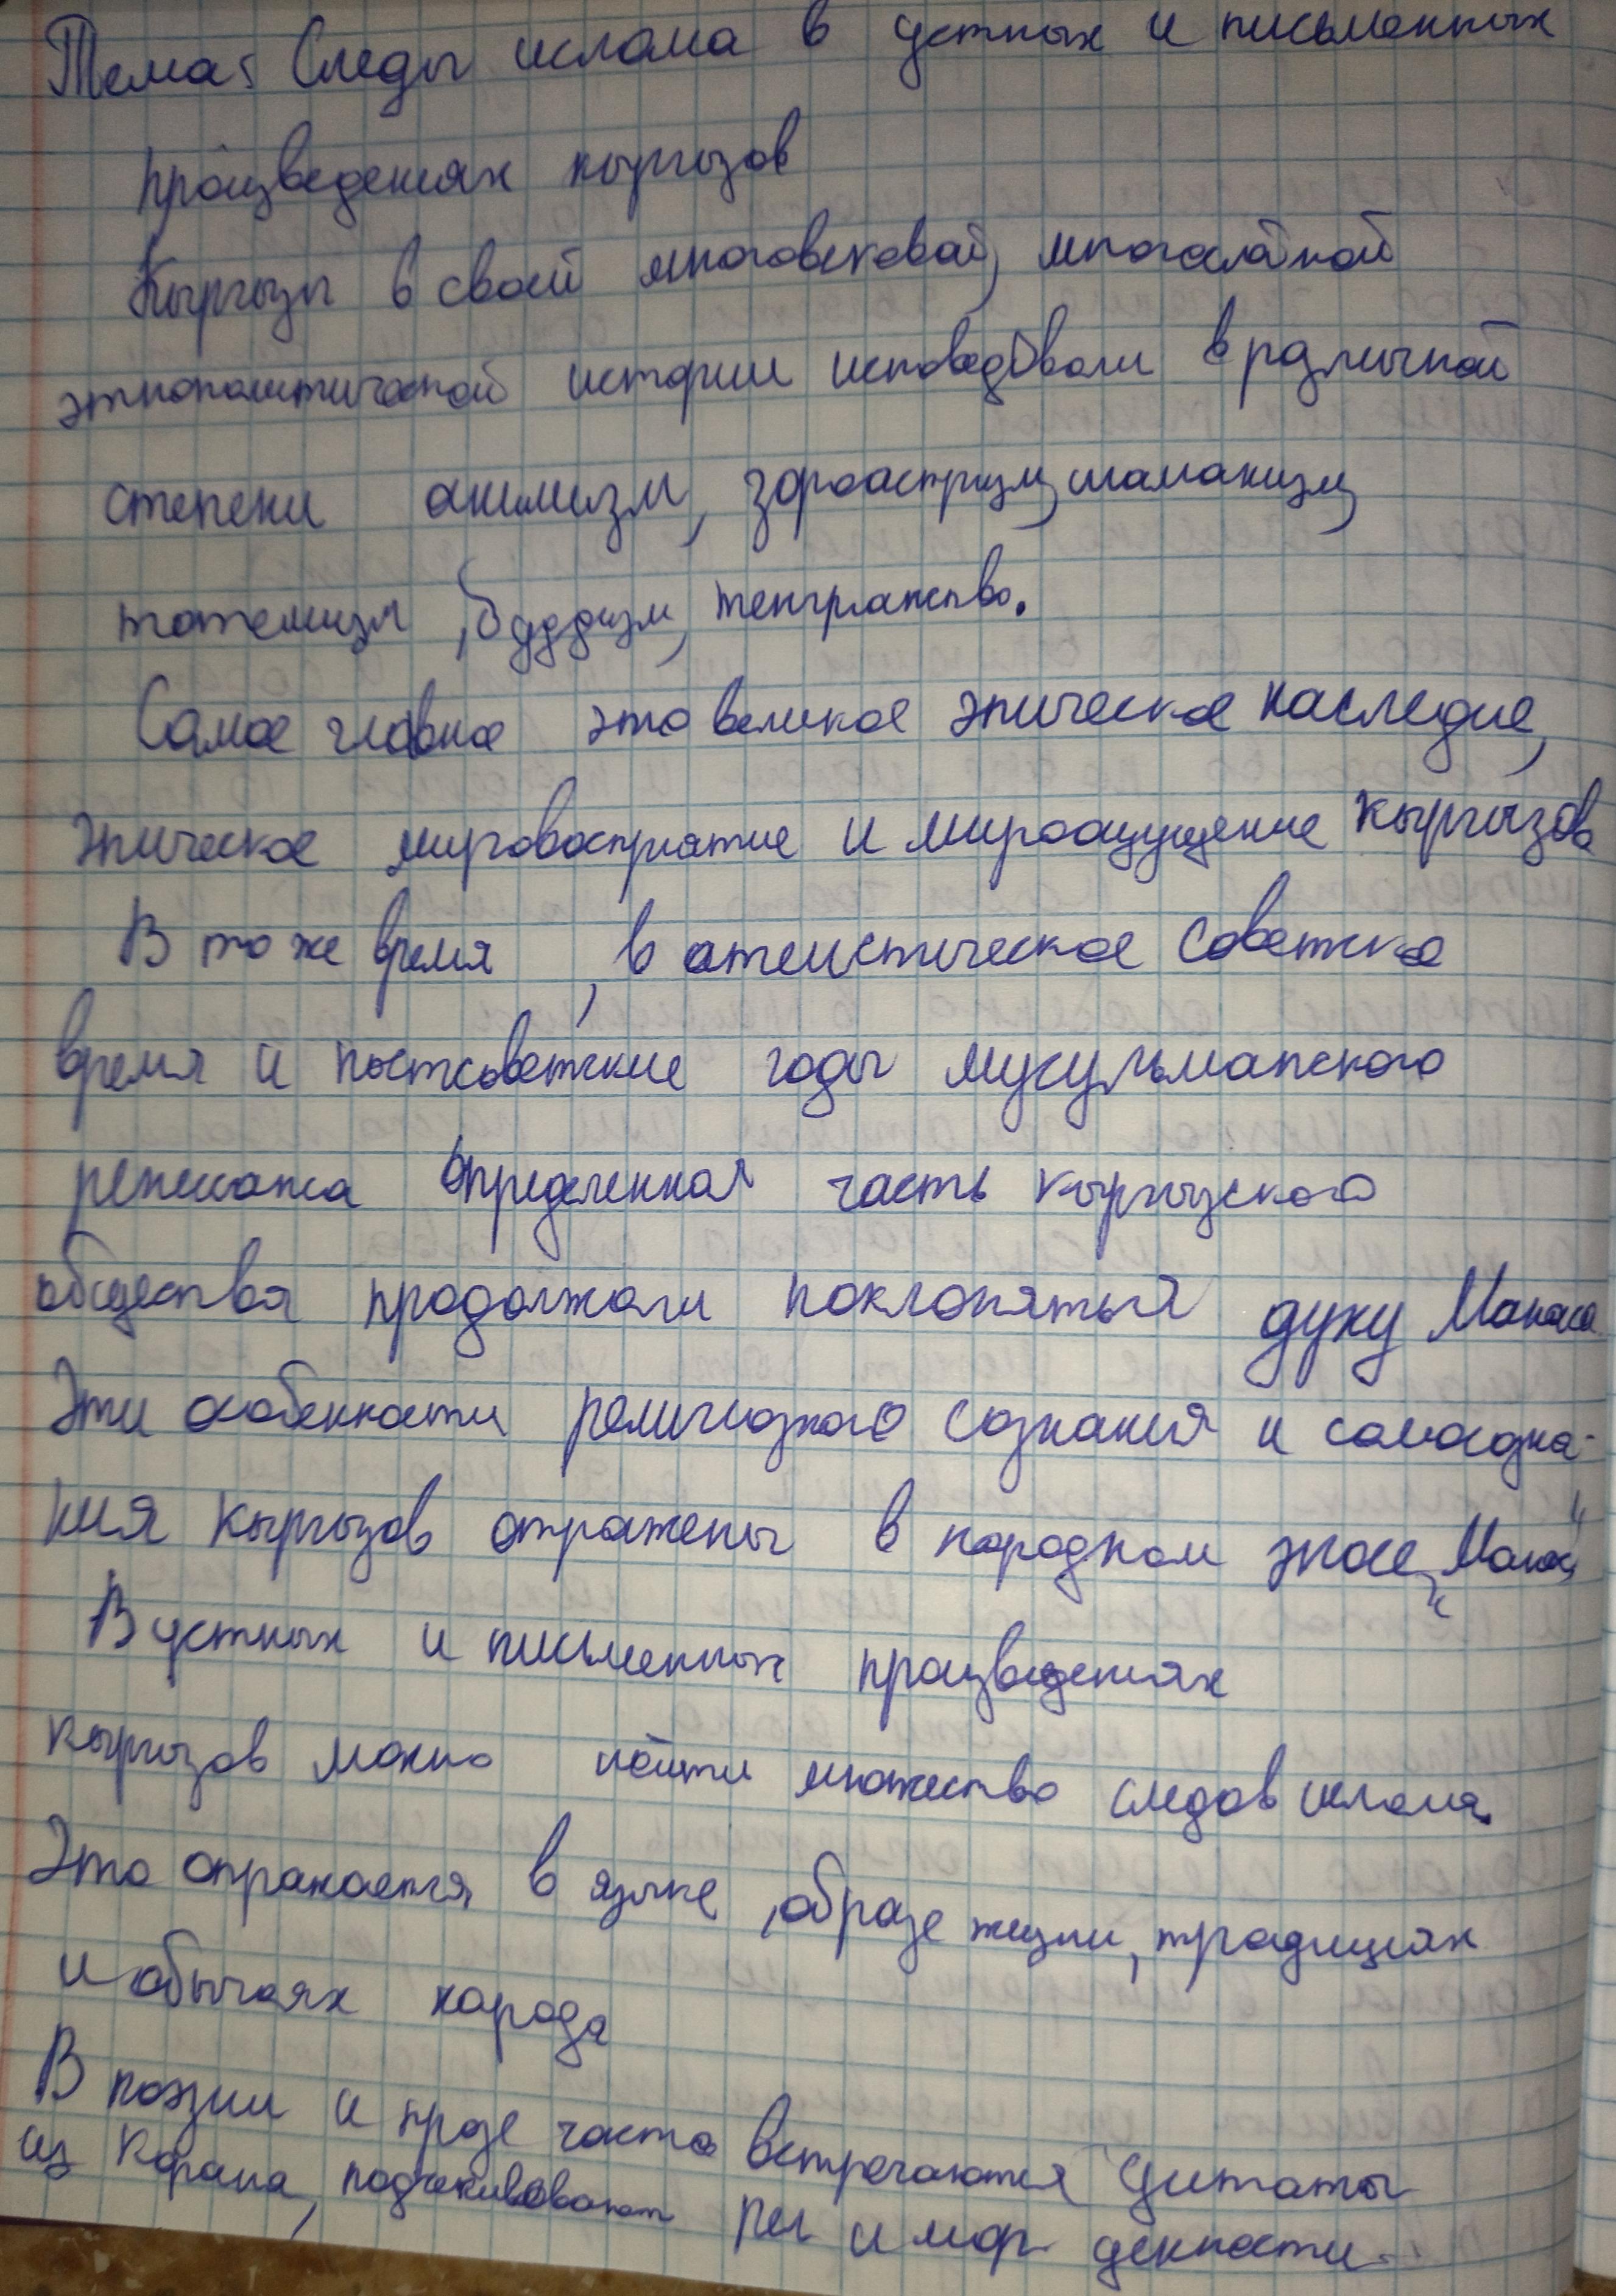 Тема: Следы ислама в устных и письменных
произведениях кыргызов
Кыргызы в своей многовековой, многослойной
этнополитической истории исповедовали в различной
степени анимизм, зороастризм, шаманизм,
тотемизм, буддизм, тенгрианство.
Самое главное это великое эпическое наследие,
эпическое мировосприятие и мироощущение кыргызов
В то же время, в атеистическое советское
время и постсоветские годы мусульманского
ренессанса определенная часть кыргызского
общества продолжали поклоняться духу Манаса
Эти особенности религиозного сознания и самосозна-
ния кыргызов отражены в народном эпосе „Манас"
В устных и письменных произведениях
кыргызов можно найти множество следов ислама.
Это отражается в языке, образе жизни, традициях
и обычаях народа
В поэзии и прозе часто встречаются цитаты
из Корана, подчеркивают рел и мор ценности.